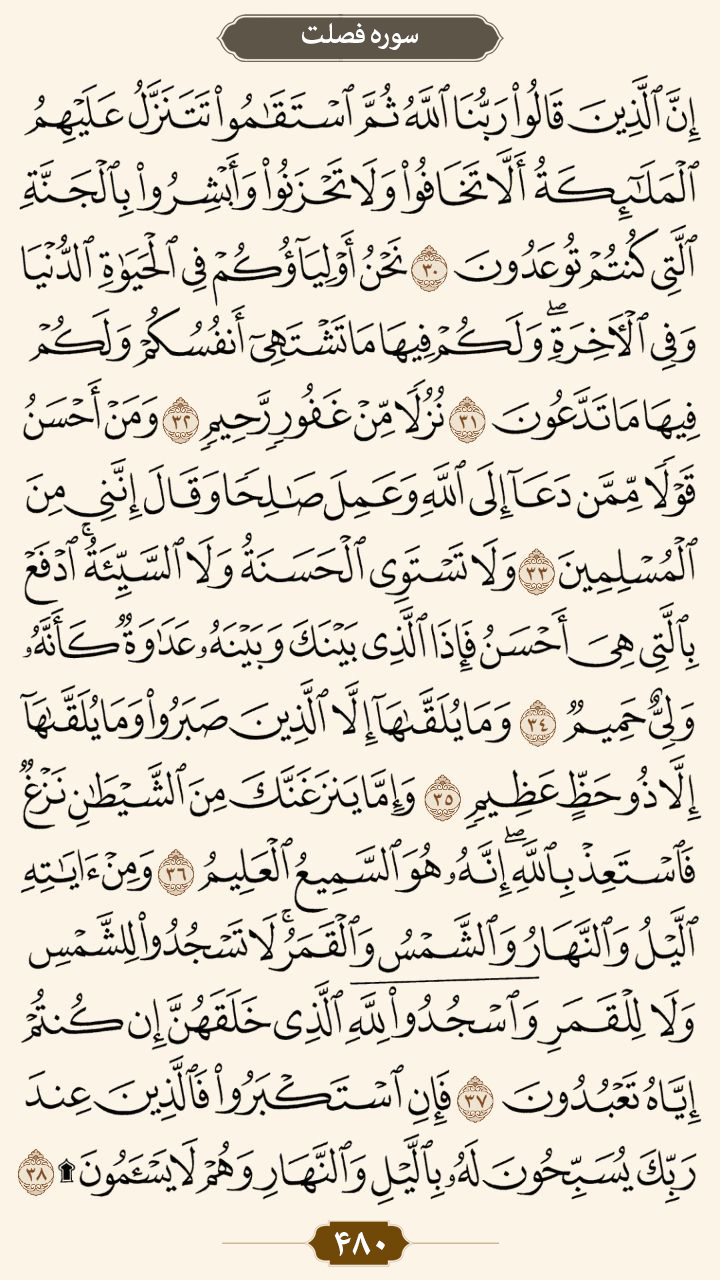 سوره فصلت
إِنَّ ٱلَّذِينَ قَالُوا۟ رَبُّنَا ٱللَّهُ ثُمَّ ٱسْتَقَـٰمُوا۟ تَتَنَزَّلُ عَلَيْهِمُ
ٱلْمَلَـٰٓئِكَةُ أَلَّا تَخَافُوا۟ وَلَا تَحْزَنُوا۟ وَأَبْشِرُوا۟ بِٱلْجَنَّةِ
ٱلَّتِى كُنتُمْ تُوعَدُونَ ٣٠ نَحْنُ أَوْلِيَآؤُكُمْ فِى ٱلْحَيَوٰةِ ٱلدُّنْيَا
وَفِى ٱلْـَٔاخِرَةِۖ وَلَكُمْ فِيهَا مَا تَشْتَهِىٓ أَنفُسُكُمْ وَلَكُمْ
فِيهَا مَا تَدَّعُونَ ٣١ نُزُلًا مِّنْ غَفُورٍ رَّحِيمٍ ٣٢ وَمَنْ أَحْسَنُ
قَوْلًا مِّمَّن دَعَآ إِلَى ٱللَّهِ وَعَمِلَ صَـٰلِحًا وَقَالَ إِنَّنِى مِنَ
ٱلْمُسْلِمِينَ ٣٣ وَلَا تَسْتَوِى ٱلْحَسَنَةُ وَلَا ٱلسَّيِّئَةُۚ ٱدْفَعْ
بِٱلَّتِى هِىَ أَحْسَنُ فَإِذَا ٱلَّذِى بَيْنَكَ وَبَيْنَهُۥ عَدَٰوَةٌ كَأَنَّهُۥ
وَلِىٌّ حَمِيمٌ ٣٤ وَمَا يُلَقَّىٰهَآ إِلَّا ٱلَّذِينَ صَبَرُوا۟ وَمَا يُلَقَّىٰهَآ
إِلَّا ذُو حَظٍّ عَظِيمٍ ٣٥ وَإِمَّا يَنزَغَنَّكَ مِنَ ٱلشَّيْطَـٰنِ نَزْغٌ
فَٱسْتَعِذْ بِٱللَّهِۖ إِنَّهُۥ هُوَ ٱلسَّمِيعُ ٱلْعَلِيمُ ٣٦ وَمِنْ ءَايَـٰتِهِ
ٱلَّيْلُ وَٱلنَّهَارُ وَٱلشَّمْسُ وَٱلْقَمَرُۚ لَا تَسْجُدُوا۟ لِلشَّمْسِ
وَلَا لِلْقَمَرِ وَٱسْجُدُوا۟ لِلَّهِ ٱلَّذِى خَلَقَهُنَّ إِن كُنتُمْ
إِيَّاهُ تَعْبُدُونَ ٣٧ فَإِنِ ٱسْتَكْبَرُوا۟ فَٱلَّذِينَ عِندَ
رَبِّكَ يُسَبِّحُونَ لَهُۥ بِٱلَّيْلِ وَٱلنَّهَارِ وَهُمْ لَا يَسْـَٔمُونَ ۩ ٣٨
۴۸۰